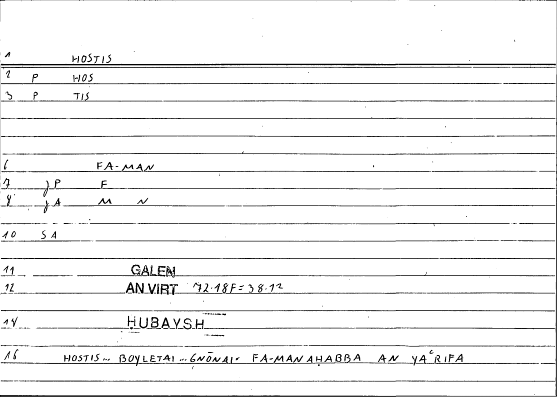 1 HOSTIS
2 P HOS
3 P TIS
6 FA-MAN
7 JP F
8 JA M N
10 SA
11 GALEN
12 AN VIRT 72.18F=38.12
14 HUBAYSH
16 HOSTIS... BOYLETAI... GNŌNAI· FA-MAN AḤABBA AN YAʿRIFA